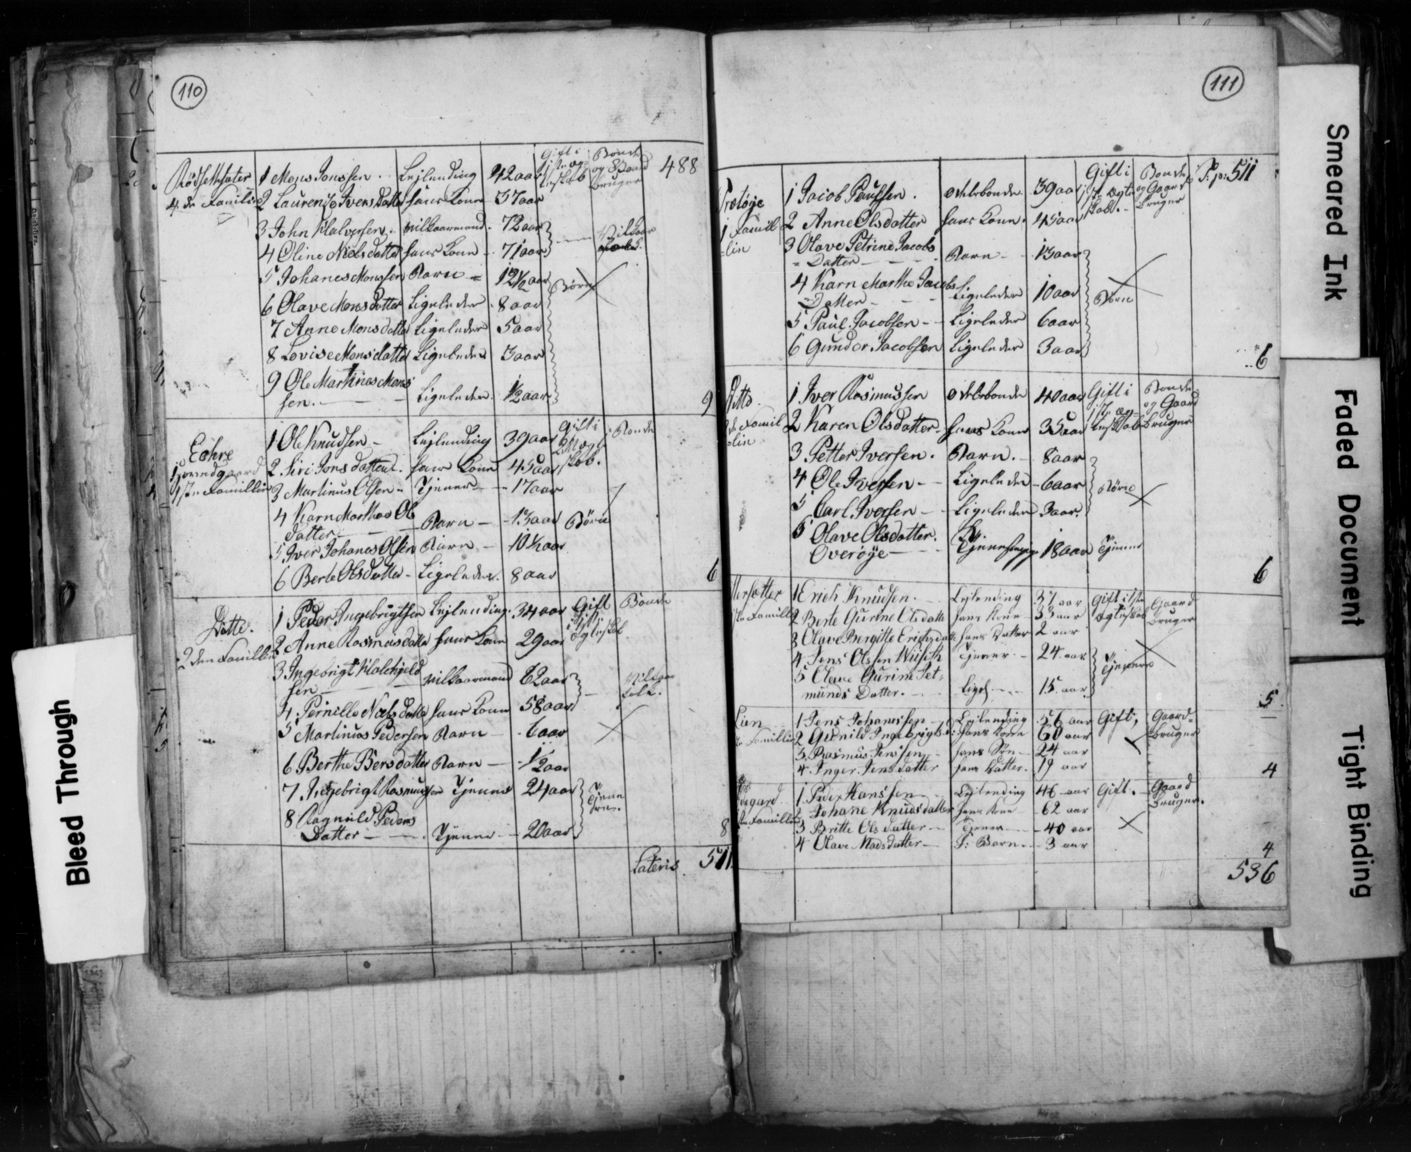 110
488
Rødsethsæter
4de Familie
1 Mons Jonssen - Lejlending 42 aar Gift i 1ste ægteskab Bonde og Gaardbruger
2 Laurenze Ivers Datter hans Kone 37 aar
3 John Halvorsen - vilkaarmand - 72 aar
4 Oline Nielsdatter hans Kone - 71 aar
5 Johanes Monssen Barn - 12½ aar Børn
6 Olave Monsdatter Ligeledes - 8 aar
7 Anne Monsdatter Ligeledes - 5 aar
8 Lovise Monsdatter Ligeledes 3 aar
9 Ole Martinus Mons
sen. Ligeledes. ½ aar
9
1 Ole Knudsen - Lejlending 39 aar Gift i Bonde
2 Siri Jons datter. hans Kone 45 aar
1ste Familie 3 Martinus Olsen - Tjener - 17 aar
4 Karn Marthas Ols
datter - Barn - 13 aar Børn
5 Iver Johanas Olsen Barn - 10½ aar
6 Berte Olsdatter - Ligeledes. 8 aar
6
Ditto.
2den Familie
1 Peder Ingebrigtsen Lejlending. 34 aar Gift Bonde
2 Anne Rasmusdatter hans Kone 29 aar
3 Ingebrigt
sen vilkaarmand 62 aar
4 Pernille Nielsdatter hans Kone 58 aar
5 Martinus Pedersen Barn - 6 aar
6 Berthe Persdatter Barn - ½ aar
7 Ingebrigt Rasmussen Tjener 24 aar
8 Ragnild Peders
Datter - Tjener - 20 aar
8
Lateris. 511
111
Tp: 511
1 Jacob Paulssen. odelsbonde 39 aar Gift i Bonde og Gaard bruger
2 Anne Olsdatter hans Kone. 45 aar
3 Olave Petrine Jacobs
Datter - Barn - 13 aar
4 Karn Marthe Jacobs
Datter - Ligeledes 10 aar Børn
5 Paul Jacobsen - Ligeledes 6 aar
6 Gunder Jacobsen Ligeledes 3 aar
6
Ditto
1 Iver Rasmussen odelsbonde 40 aar Gift i Bonde og Gaard Bruger
2 Karen Olsdatter hans Kone 35 aar
3 Petter Iversen. Barn. - 8 aar
4 Ole Iversen - Ligeledes - 6 aar Børn
5 Carl Iversen - Ligeledes 3 aar.
6 Olave Olsdatter.
Overøye - 18 aar Tjener
6
1 Erich Knudsen. Lejlending 37 aar Gift 1ste Ægteskab Gaard Bruger
2 Berte Gurine Olsdatter hans Kone 33 aar
3 Olave Bergitte Erichsdatter hans Datter 2 aar
4 Jens Olssen Tjener - 24 aar Tjenere
5 Olave Gurine Pet-
munds Datter. - Lige - 15 aar
5
Lien
1 Jens Johanssen - Lejlending 56 aar Gift, Gaard-Bruger
2 Gunild Ingebrigts D: hans Kone 60 aar
3 Rasmus Jenssen - hans Søn - 24 aar
4 Inger Jensdatter hans Datter. 19 aar
4
1 Peder Hanssen - Lejlending 46 aar Gift. - Gaard Bruger.
2 Johane Knudsdatter hans Kone 62 aar
3 Britte Olsdatter - Tjener - 40 aar
4 Olave Madsdatter - Barn - 3 aar
4
536
Bleed Through
Smeared Ink
Faded Document
Tight Binding